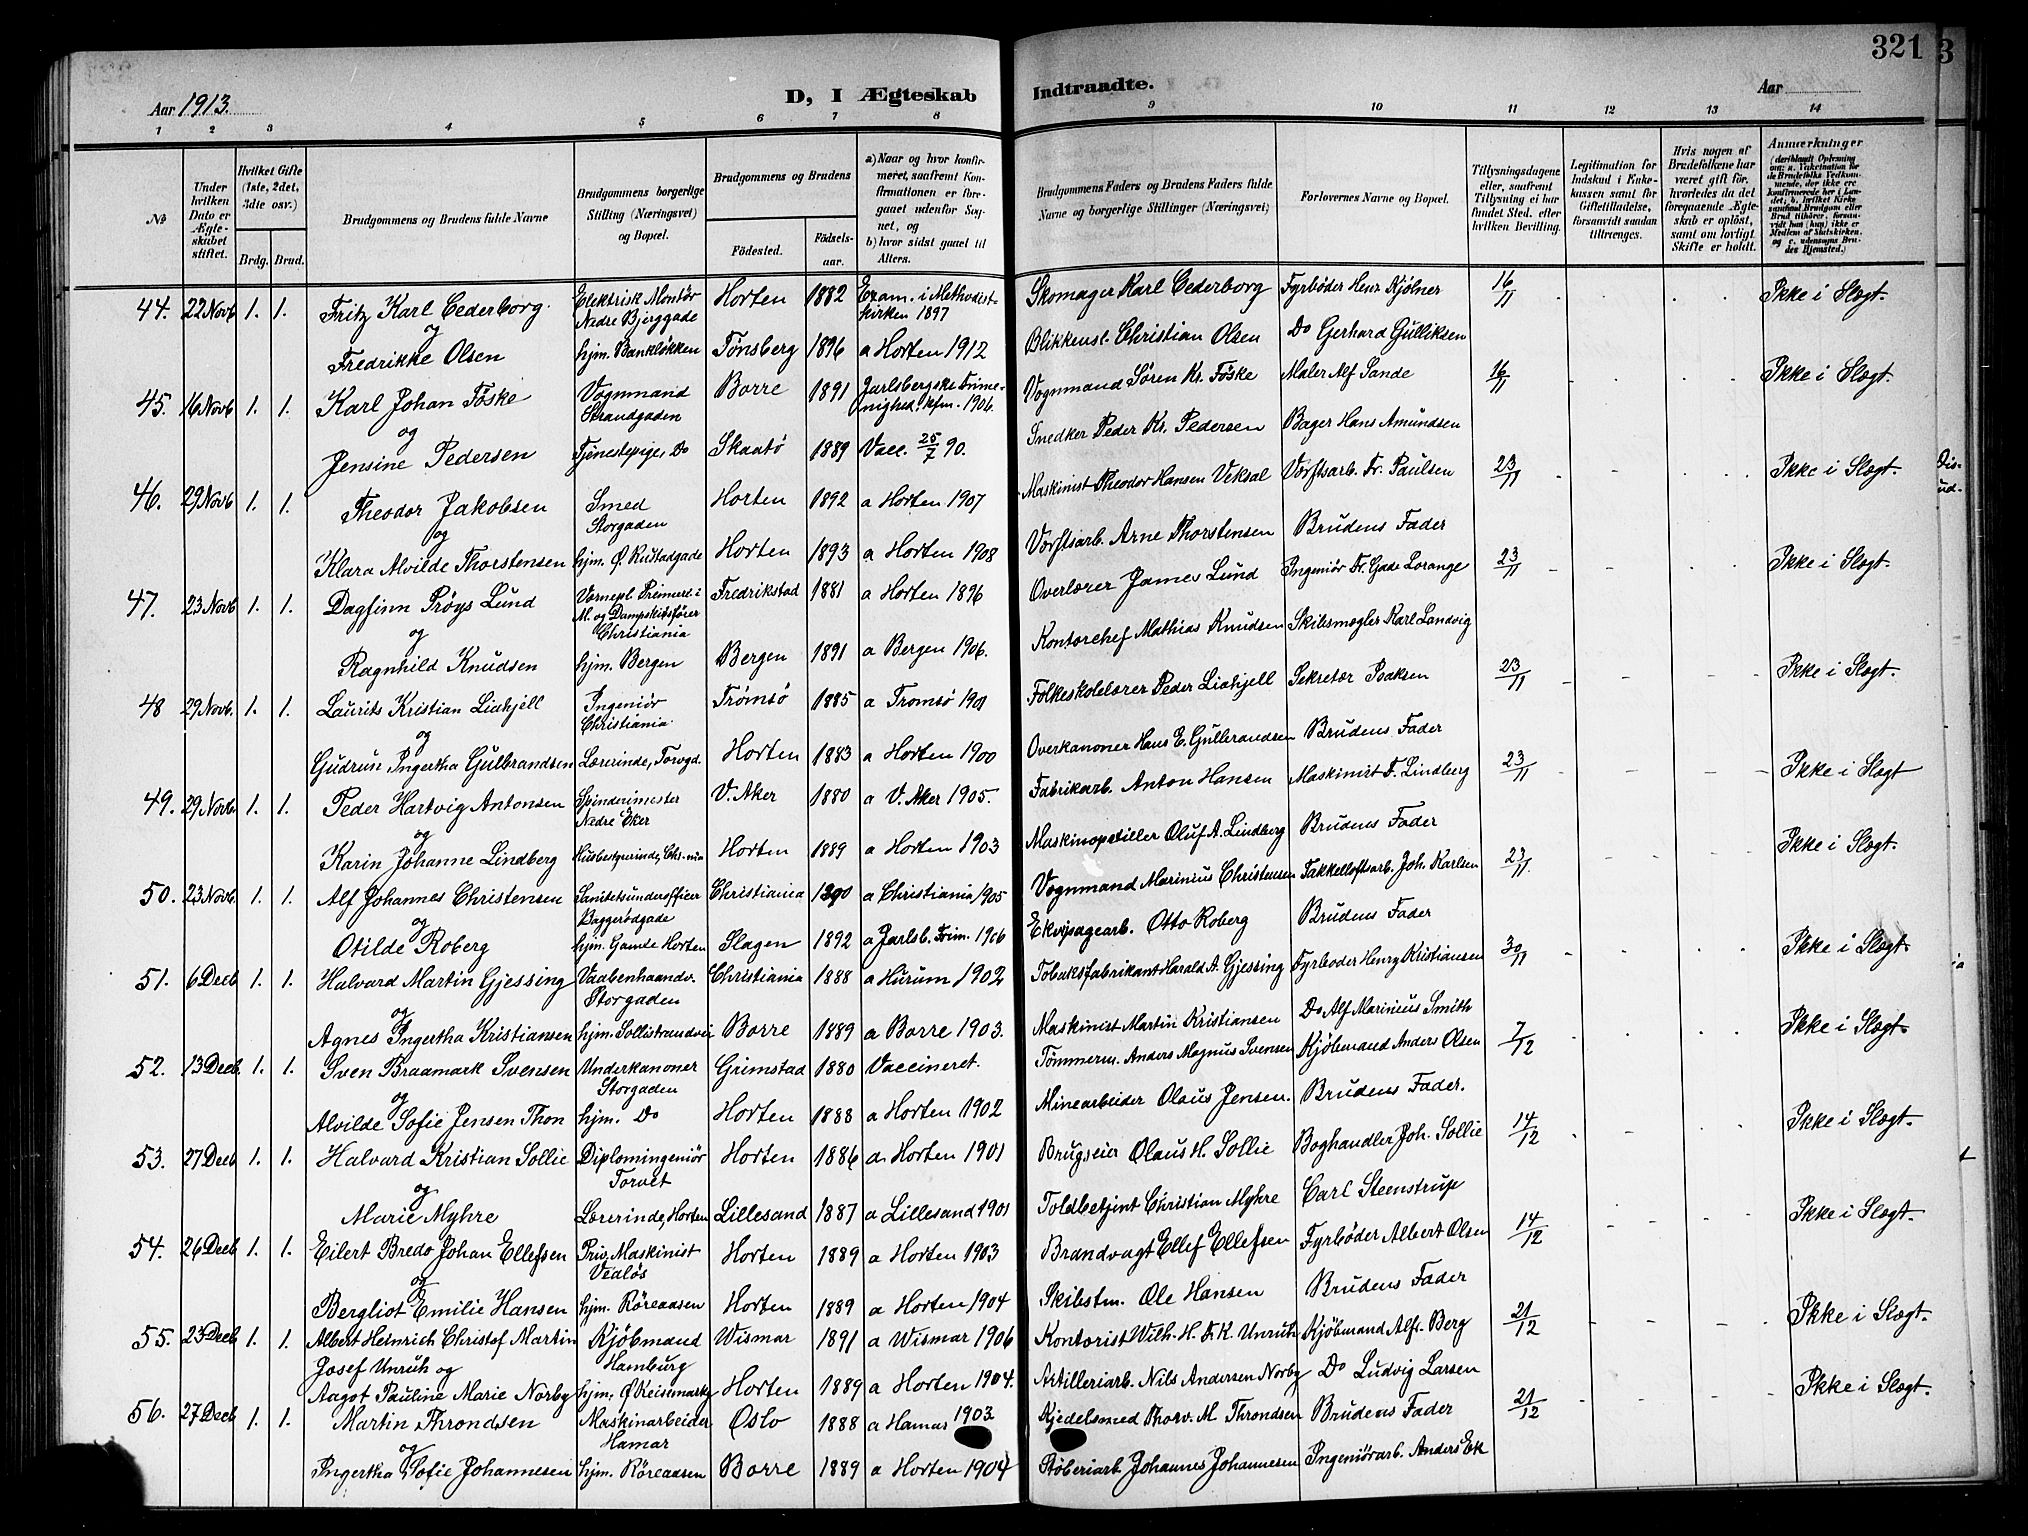 321
Aar 1913.
D, I Ægteskab Indtraadte.
Aar
1 2 3 4 5 6 7 8 9 10 11 12 13 14
No
Under hvilken Dato er Ægteskabet stiftet.
Hvilket Gifte (1ste, 2det, 3dte osv.)
Brdg. Brud.
Brudgommens og Brudens fulde Navne
Brudgommens borgerlige Stilling (Næringsvei) og Bopæl.
Brudgommens og Brudens
Fødested. Fødselsaar.
a) Naar og hvor konfirmeret, saafremt Konfirmationen er foregaaet udenfor Sognet, og
b) hvor sidst gaaet til Alters.
Brudgommens Faders og Brudens Faders fulde Navne og borgerlige Stillinger (Næringsvei)
Forlovernes Navne og Bopæl.
Tillysningsdagene eller, saafremt Tillysning ei har fundet Sted, efter hvilken Bevilling.
Legitimation for Indskud i Enkekassen samt for Giftetilladelse, forsaavidt saadan tiltrænges.
Hvis nogen af Brudefolkene har været gift før, hvorledes da det foregaaende Ægteskab er opløst, samt om lovligt Skifte er holdt.
Anmærkninger
44. 22 Novb 1. 1. Fritz Karl Cederborg. Elektrisk Montör Nedre Bjerggade Horten 1882 Exam. i Methodistkirken 1897 Skomager Karl Cederborg Fyrböder Henr. Kjölner 16/11 Ikke i Slægt.
og
Fredrikke Olsen hjm. Bankløkken Tønsberg 1896 a Horten 1912 Blikkensl. Christian Olsen Do Gerhard Gulliksen
45. 16 Novb 1. 1. Karl Johan Föske Vognmand Strandgaden Borre 1891 Jarlsbergske Frimenighed, kfm. 1906. Vognmand Sören Kr. Föske Maler Alf Sande 16/11 Ikke i Slægt.
og
Jensine Pedersen Tjenestepige, Do Skaatö 1889 Vacc. 25/7 90. Snedker Peder Kr. Pedersen Bager Hans Amundsen
46. 29 Novb 1. 1. Theodor Jakobsen Smed Storgaden Horten 1892 a Horten 1907 Maskinist Theodor Hansen Veksal Verftsarb. Fr. Paulsen 23/11 Ikke i Slægt.
og
Klara Alvilde Thorstensen hjm. Ø. Rustadgade Horten 1893 a Horten 1908 Verftsarb. Arne Thorstensen Brudens Fader
47. 23 Novb 1. 1. Dagfinn Prøys Lund Vernepl. Premierl. i M. og Dampskibsfører Christiania Fredrikstad 1881 a Horten 1896 Overlærer Jame Lund Ingeniör Fr. Gade Lorange 23/11 Ikke i Slægt.
og
Ragnhild Knudsen hjm. Bergen Bergen 1891 a Bergen 1906. Kontorchef Mathias Knudsen Skibsmægler Karl Landvig
48 29 Novb. 1. 1. Laurits Kristian Liahjell Ingeniör Christiania Tromsö 1885 a Tromsö 1901 Folkeskolelærer Peder Liahjell Sekretær Isaksen 23/11 Ikke i Slægt.
og
Gudrun Ingertha Gulbrandsen Lærerinde, Torvgd. Horten 1883 a Horten 1900 Overkanoner Hans E. Gulbrandsen Brudens Fader
49. 29 Novb. 1. 1. Peder Hartvig Antonsen Spinderimester Nedre Eker V. Aker 1880 a V. Aker 1905. Fabrikarb. Anton Hansen Maskinist F. Lindberg 23/11 Ikke i Slægt
og
Karin Johanne Lindberg Husbestyrerinde, Chr-nia Horten 1889 a Horten 1903 Maskinopstiller Oluf A. Lindberg Brudens Fader
50. 23 Novb. 1. 1. Alf Johannes Christensen Sanitetsunderofficer Baggerødgade Christiania 1890 a Christiania 1905 Vognmand Marinius Christensen Takkelloftsarb. Joh. Karlsen 23/11. Ikke i Slægt.
og
Otilde Roberg hjm. Gamle Horten Slagen 1892 a Jarlsb. Frim. 1906 Ekvipagearb. Otto Roberg Brudens Fader
51. 6 Decb 1. 1. Halvard Martin Gjessing Vaabenhaandv. Storgaden Christiania 1888 a Hurum 1902 Tobaksfabrikant Harald A. Gjessing Fyrböder Henry Kristiansen 30/11 Ikke i Slægt.
og
Agnes Ingertha Kristiansen hjm. Sollistrandvei Borre 1889 a Borre 1903. Maskinist Martin Kristiansen Do Alf Marinius Smith
52. 13 Decb. 1. 1. Sven Braamark Svensen Underkanoner Storgaden Grimstad 1880 Vaccineret. Tömmerm. Anders Magnus Svensen Kjöbmand Anders Olsen 7/12 Ikke i Slægt.
og
Alvilde Sofie Jensen Thon hjm. Do Horten 1888 a Horten 1902 Minearbeider Olaus Jensen. Brudens Fader.
53. 27 Decb 1. 1. Halvard Kristian Sollie Diplomingeniör Torvet Horten 1886 a Horten 1901 Brugseier Olaus H. Sollie Boghandler Joh. Sollie 14/12 Ikke i Slægt.
og
Marie Myhre Lærerinde, Horten Lillesand 1887 a Lillesand 1901 Toldbetjent Christian Myhre Carl Steenstrup
54. 26 Decb 1. 1. Eilert Bredo Johan Ellefsen Priv. Maskinist Vealös Horten 1889 a Horten 1903 Brandvagt Ellef Ellefsen Fyrböder Albert Olsen 14/12 Ikke i Slægt.
og
Bergliot Emilie Hansen hjm. Röreaasen Horten 1889 a Horten 1904 Skibstm. Ole Hansen Brudens Fader
55. 23 Decb 1. 1. Albert Heinrich Christof Martin Kjöbmand Hamburg Wismar 1891 a Wismar 1906 Kontorist Wilh. H. F. K. Unruh Kjöbmand Alf. Berg 21/12 Ikke i Slægt.
Josef Unruh og
Aagot Pauline Marie Norby hjm. Ø. Keisemark Horten 1889 a Horten 1904. Artilleriarb. Nils Andersen Norby Do Ludvig Larsen
56. 27 Decb 1. 1. Martin Throndsen Maskinarbeider Hamar Oslo 1888 a Hamar 1903 Kjedelsmed Thorv. M. Throndsen Brudens Fader 21/12 Ikke i Slægt.
og
Ingertha Sofie Johannesen hjm. Röreaasen Borre 1889 a Horten 1904 Støberiarb. Johannes Johannesen Ingeniörarb. Anders Ek